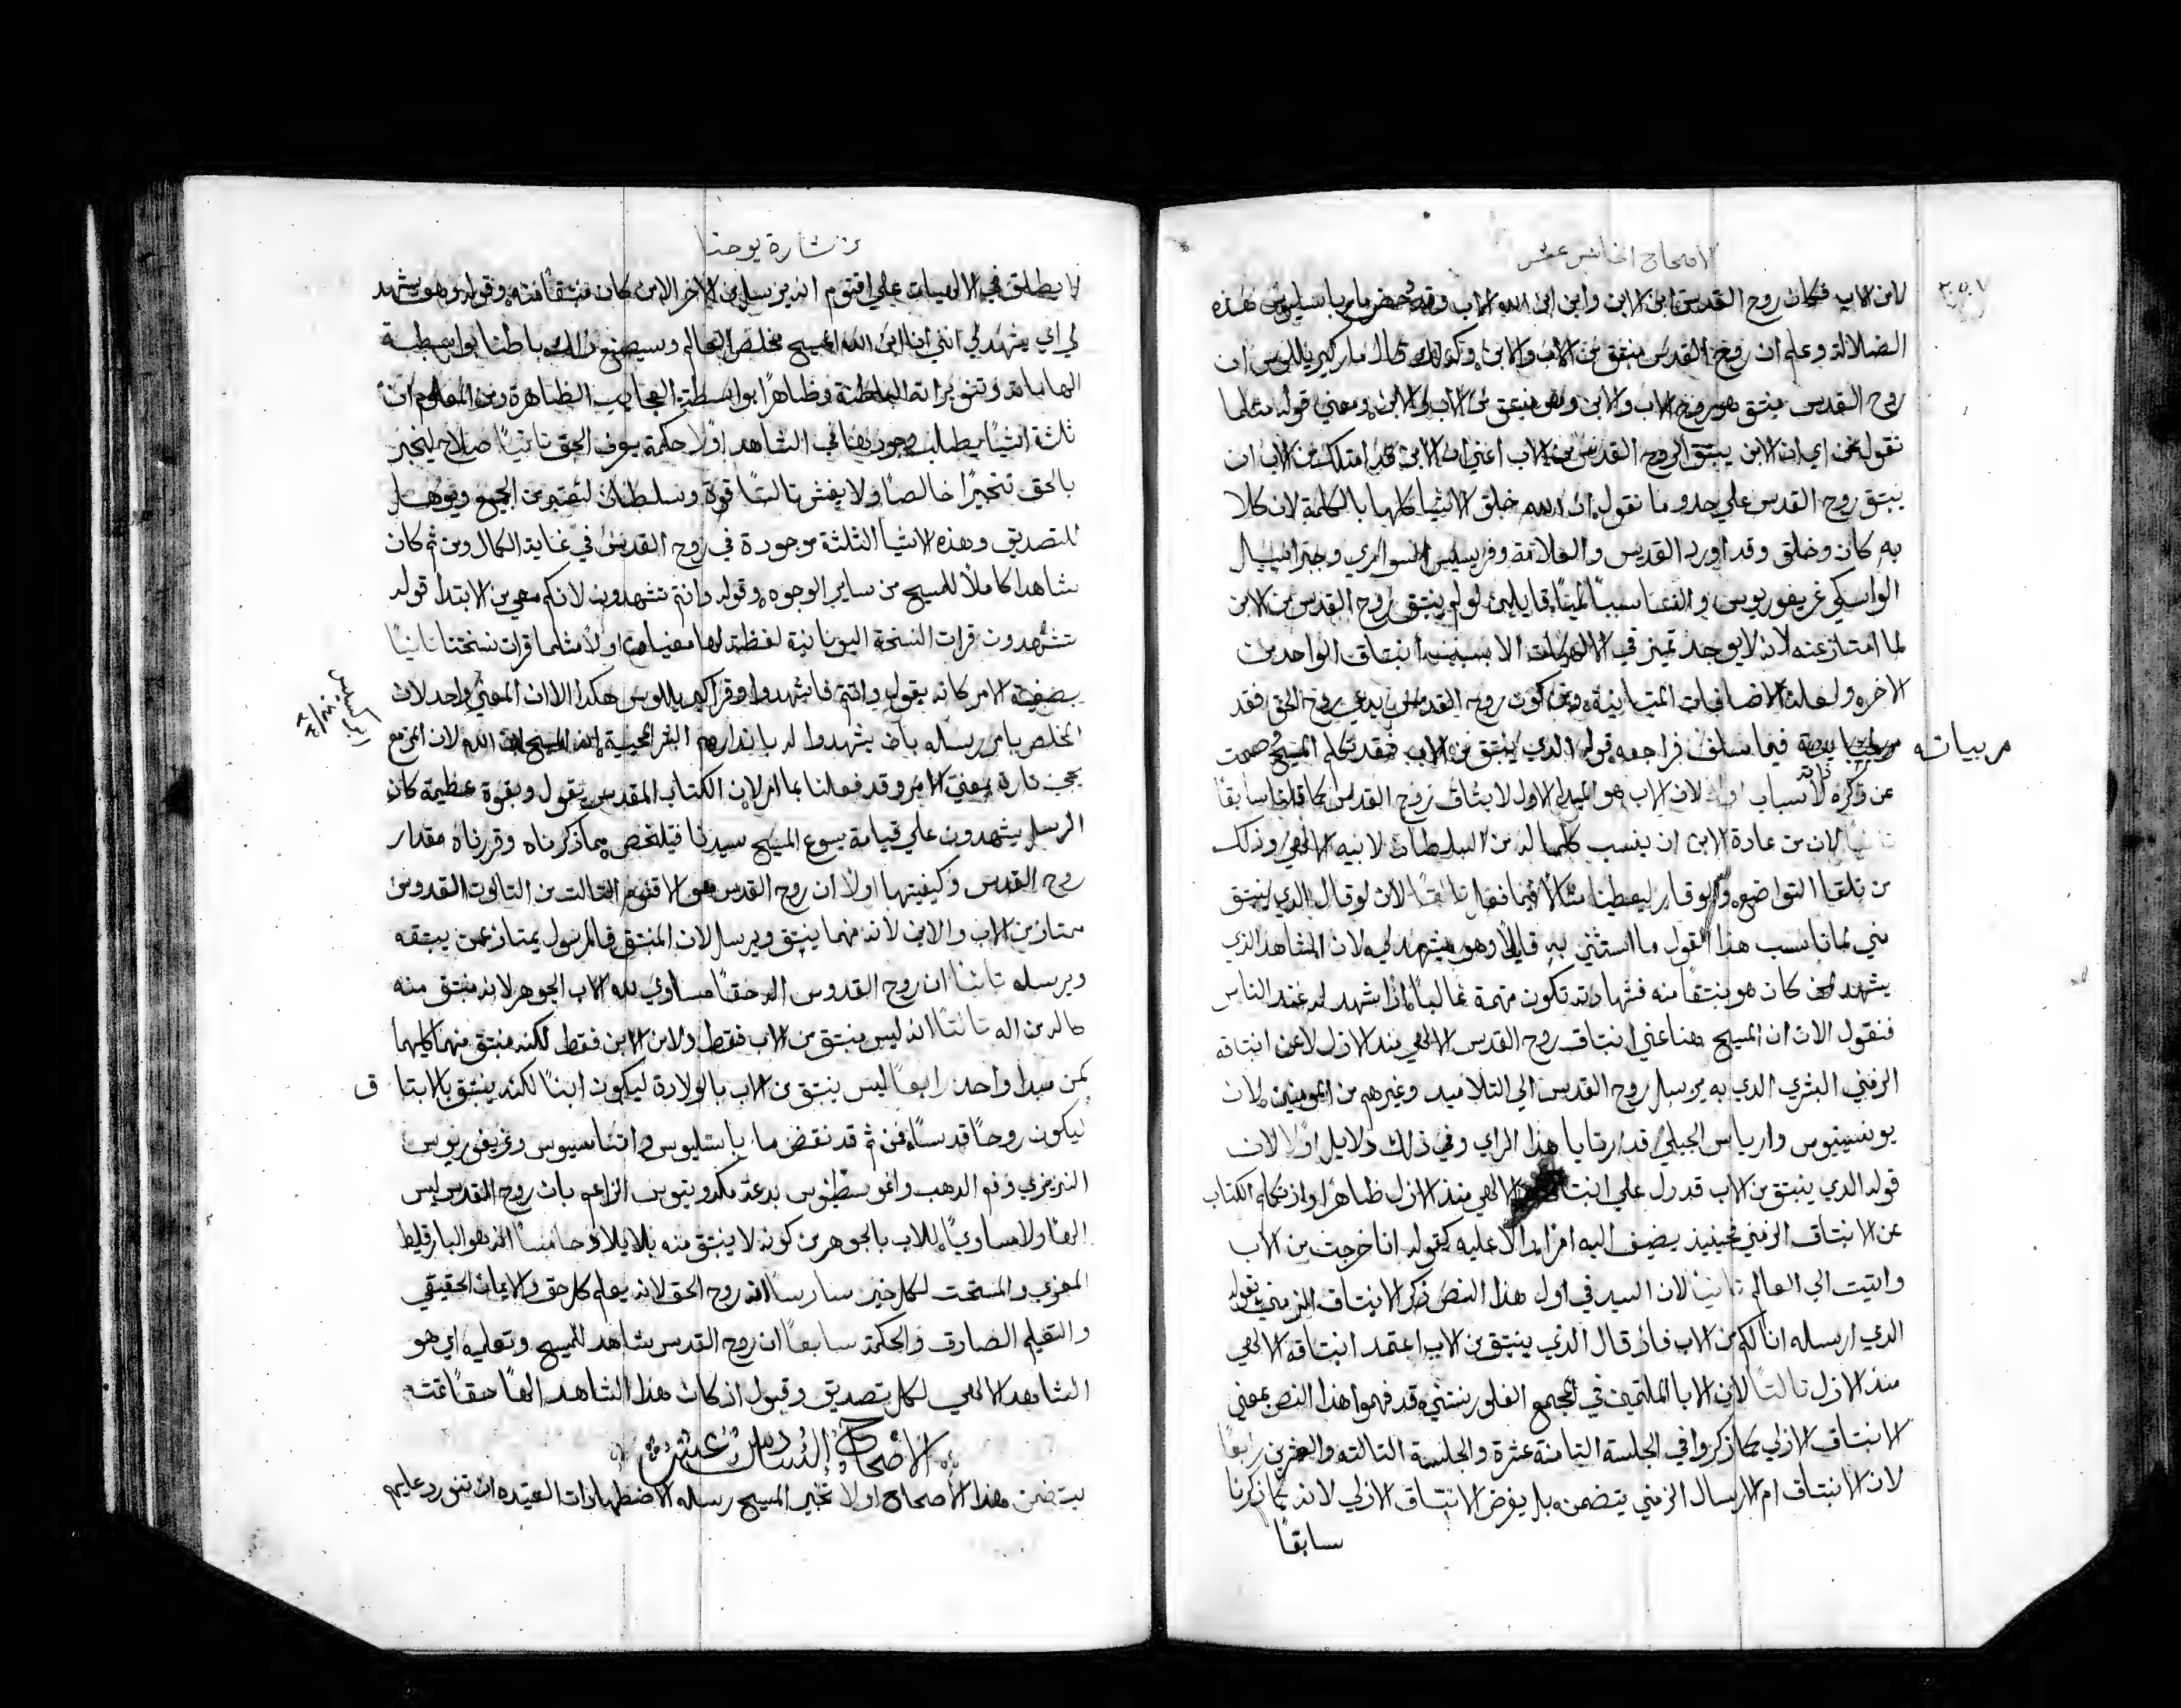 الاصحاح الخامس عشر
لابن الاب فكان روح القدس ابن الابن وابن ابن الله الاب وقد دحض مار باسيليوس هذه
الضلالة وعلم ان روح القدس منبتق من الاب والابن وكذلك قال مار كيرياللوس ان
روح القدس ينبتق هو روح الاب والابن وهو منبتق من الاب والابن ومعني قوله مثلما
نقول نحن اي ان الابن يبتق الروح القدس من الاب اعني ان الابن قد امتلك من الاب ان
يبتق روح القدس علي حدو ما نقول ان الله خلق الاشيا كلها بالكلمة لان كلا
به كان وخلق وقد اورد القديس والعلامة وفرنسيس السوازي وجبراييل
الواسكي غريغوريوس والقـ سببا لميا قايلين لو لم ينبتق روح القدس من الابن
لما امتاز عنه لانه لا يوجد تميز في الالهيات الا بسبب انبتاق الواحد من
الاخر ولعلة الاضافات المتباينة ومن كون روح القدس يدعي روح الحق فقد
مر بيانه فيما سلف فراجعه قوله الدي ينبتق من الاب فقد تكلم المسيح وصمت
عن ذكره لاسباب ثلاثة اولا لان الاب هو المبدا الاول لانبثاق روح القدس كما قلنا سابقا
ثانيا لان من عادة الابن ان ينسب كلما له من السلطان لابيه الالهي وذلك
من تلقا التواضع والوقار ليعطينا مثالا فيما نفعل ثالثا لان لو قال الدي ينبتق
مني لما ناسب هذا القول ما استثني به قايلا وهو يشهد لي لان الشاهد الذي
يشهد لمن كان هو منبتقا منه فشهادته تكون متهمة غالبا اذا شهد له عند الناس
فنقول الان ان المسيح هنا عني انبتاق روح القدس الالهي منذ الازل لا عن انبتاقه
الزمني البشري الدي به يرسل روح القدس الي التلاميد وغيرهم من المومنين لان
يونسينيوس وارياس الجيلي قد ارتايا هذا الراي وفي ذلك دلايل اولا لان
قوله الدي ينبتق من الاب قد دل علي انبتاقه الالهي منذ الازل ظاهرا واذ تكلم الكتاب
عن الانبتاق الزمني فحينيذ يضيف اليه امرا دالا عليه كقوله انا خرجت من الاب
واتيت الي العالم ثانيا لان السيد في اول هذا النص ذكر الانبتاق الزمني بقوله
الدي ارسله انا لكم من الاب فاذ قال الذي ينبتق من الاب اعتمد انبتاقه الالهي
منذ الازل ثالثا لان الابا الملتمين في المجمع الفلورنتيني قد فهموا هذا النص بمعني
الانبتاق الازلي كما ذكروا في الجلسة الثامنة عشرة والجلسة الثالثه والعشرين رابعا
لان الانبتاق ام الارسال الزمني يتضمن بل يفرض الانبتاق الازلي لانه كما ذكرنا
سابقا
من بشارة يوحنا
لا يطلق في الالهيات علي اقنوم انه يرسل من الاخر الا من كان منبتقا منه وقوله وهو يشهد
لي اي يشهد لي انني انا ابن الله المسيح مخلص العالم وسيصنع ذلك باطنا بواسطة
الهاماته وتنويراته الباطنة وظاهرا بواسطة العجايب الظاهرة ومن المعلوم ان
ثلثة اشيا يطلب وجودها في الشاهد اولا حكمة يعرف الحق ثانيا صلاح ليخبر
بالحق تخبيرا خالصا ولا يغش ثالثا قوة وسلطان ليعتبر من الجميع ويوهل
للتصديق وهذه الاشيا الثلثة موجودة في روح القدس في غاية الكمال ومن ثم كان
شاهدا كاملا للمسيح من ساير الوجوه وقوله وانتم تشهدون لانكم معي من الابتدا قوله
تشهدون قرات النسخة اليونانية لفظة لها معنيان اولا مثلما قرات نسختنا ثانيا
بصيغة الامر كانه يقول وانتم فاشهدوا وقرا كيرياللوس هكدا الا ان المعني واحد لان
المخلص يامر رسله بان يشهدوا له بانذارهم البشري انه المسيح ابن الله لان المزمع
يجي تارة بمعني الامر وقد فعلنا بما امر لان الكتاب المقدس يقول وبقوة عظيمة كان
الابركسيس
الرسل يشهدون علي قيامة يسوع المسيح سيدنا فيتلخص مما ذكرناه وقررناه مقدار
روح القدس وكيفيتها اولا ان روح القدس هو الاقنوم الثالث من الثالوث القدوس
ممتاز من الاب والابن لانه منهما ينبتق ويرسل لان المنبتق والمرسول يمتاز عمن يبتقه
ويرسله ثانيا ان روح القدوس اله حقا مساوي لله الاب الجوهر لانه منبتق منه
كاله من اله ثالثا انه ليس منبتق من الاب فقط ولا من الابن فقط لكنه منبتق منهما كليهما
كمن مبدا واحد رابعا ليس ينبتق من الاب بالولادة ليكون ابنا لكنه ينبتق بالابتاق
ليكون روحا قدسا فمن ثم قد نقض مار باسليوس واتناسيوس وغريغوريوس
النزينزي وفم الدهب واغوسطينوس بدعة مكدونيوس الزاعم بان روح القدس ليس
الها ولا مساويا للاب بالجوهر من كونه لا ينبتق منه بلايلاد خامسا انه هو البارقليط
المعزي والمستحت لكل خير سادسا انه روح الحق لانه يعلم كل حق والايمان الحقيقي
والتعليم الصادق والحكمة سابعا ان روح القدس شاهد للمسيح وتعليمه اي هو
الشاهد الالهي لكل تصديق وقبول اذ كان هذا الشاهد الها حقا تمت
الاصحاح السادس عشر
يتضمن هذا الاصحاح اولا تخبير المسيح رسله الاضطهادات العتيده ان تورد عليهم